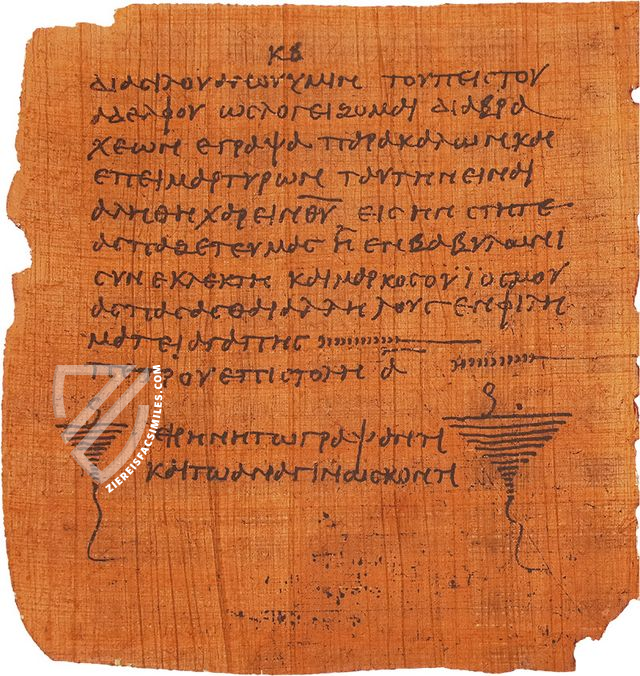 κβ
διασιλουανουυμιν τουπειστου
αδελφου ωσλογειζομαι διαβρα
χεων εγραψα παρακαλων και
επειμαρτυρων ταυτην ειναι
αληθη χαρειν θ̅υ̅ εις ην στητε
ασπαζετε υμας η εν βαβυλωνι
συνεκλεκτη και μαρκος ο υιος μου
ασπασασθαι αλληλους εν φιλη
ματει αγαπης
πετρου επιστολη α̅
ειρηνη τω γραψαντι
και τω αναγινωσκοντι
ZIEREISFACSIMILES.COM